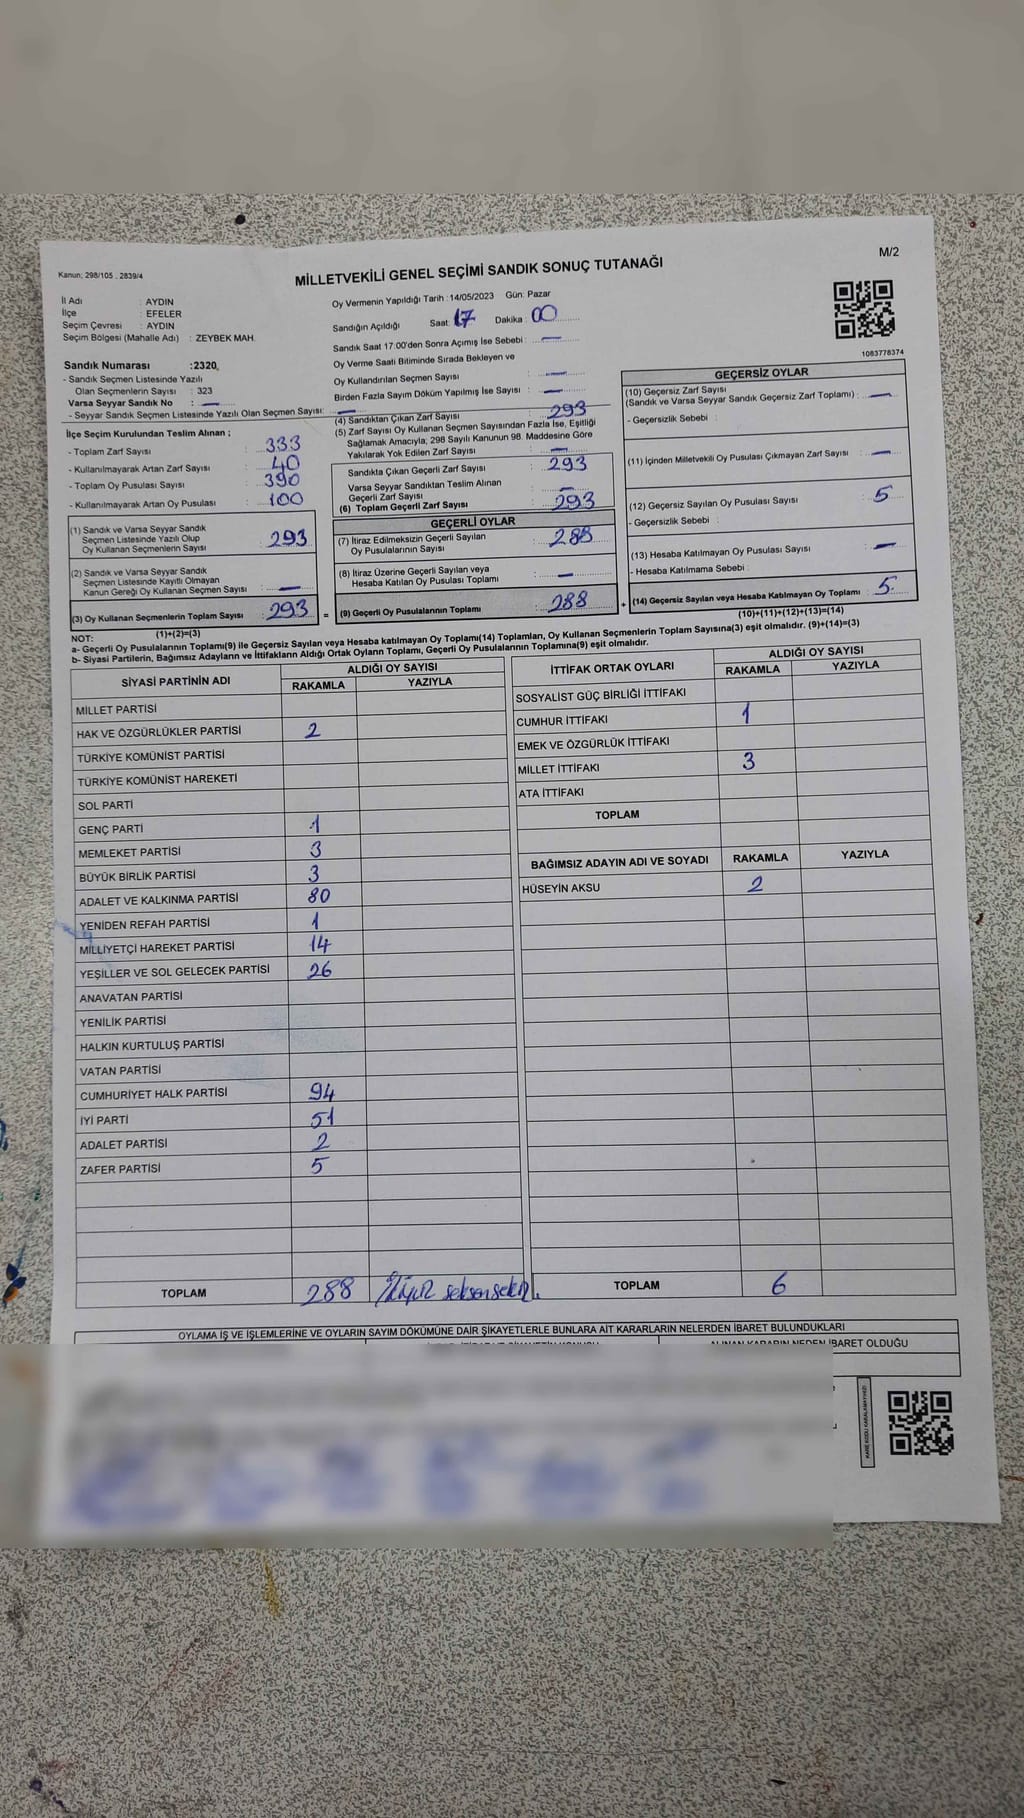 Kanun; 298/105 , 2839/4
M/2
MİLLETVEKİLİ GENEL SEÇİMİ SANDIK SONUÇ TUTANAĞI
İl Adı : AYDIN
İlçe : EFELER
Seçim Çevresi : AYDIN
Seçim Bölgesi (Mahalle Adı) : ZEYBEK MAH.
Oy Vermenin Yapıldığı Tarih : 14/05/2023 Gün: Pazar
Sandığın Açıldığı Saat: 17 Dakika : 00
Sandık Saat 17:00'den Sonra Açımış İse Sebebi : —
Oy Verme Saati Bitiminde Sırada Bekleyen ve
Oy Kullandırılan Seçmen Sayısı : —
Birden Fazla Sayım Döküm Yapılmış İse Sayısı : —
1083778374
Sandık Numarası :2320
- Sandık Seçmen Listesinde Yazılı
Olan Seçmenlerin Sayısı : 323
Varsa Seyyar Sandık No : —
- Seyyar Sandık Seçmen Listesinde Yazılı Olan Seçmen Sayısı: —
İlçe Seçim Kurulundan Teslim Alınan ;
- Toplam Zarf Sayısı : 333
- Kullanılmayarak Artan Zarf Sayısı : 40
- Toplam Oy Pusulası Sayısı : 390
- Kullanılmayarak Artan Oy Pusulası : 100
(1) Sandık ve Varsa Seyyar Sandık
Seçmen Listesinde Yazılı Olup
Oy Kullanan Seçmenlerin Sayısı : 293
(2) Sandık ve Varsa Seyyar Sandık
Seçmen Listesinde Kayıtlı Olmayan
Kanun Gereği Oy Kullanan Seçmen Sayısı : —
(3) Oy Kullanan Seçmenlerin Toplam Sayısı : 293 =
(1)+(2)=(3)
(4) Sandıktan Çıkan Zarf Sayısı : 293
(5) Zarf Sayısı Oy Kullanan Seçmen Sayısından Fazla İse, Eşitliği
Sağlamak Amacıyla; 298 Sayılı Kanunun 98. Maddesine Göre
Yakılarak Yok Edilen Zarf Sayısı : —
Sandıkta Çıkan Geçerli Zarf Sayısı : 293
Varsa Seyyar Sandıktan Teslim Alınan
Geçerli Zarf Sayısı : —
(6) Toplam Geçerli Zarf Sayısı : 293
GEÇERLİ OYLAR
(7) İtiraz Edilmeksizin Geçerli Sayılan
Oy Pusulalarının Sayısı : 288
(8) İtiraz Üzerine Geçerli Sayılan veya
Hesaba Katılan Oy Pusulası Toplamı : —
(9) Geçerli Oy Pusulalarının Toplamı : 288 +
GEÇERSİZ OYLAR
(10) Geçersiz Zarf Sayısı
(Sandık ve Varsa Seyyar Sandık Geçersiz Zarf Toplamı) : —
- Geçersizlik Sebebi :
(11) İçinden Milletvekili Oy Pusulası Çıkmayan Zarf Sayısı : —
(12) Geçersiz Sayılan Oy Pusulası Sayısı : 5
- Geçersizlik Sebebi :
(13) Hesaba Katılmayan Oy Pusulası Sayısı : —
- Hesaba Katılmama Sebebi :
(14) Geçersiz Sayılan veya Hesaba Katılmayan Oy Toplamı : 5
(10)+(11)+(12)+(13)=(14)
NOT:
a- Geçerli Oy Pusulalarının Toplamı(9) ile Geçersiz Sayılan veya Hesaba katılmayan Oy Toplamı(14) Toplamları, Oy Kullanan Seçmenlerin Toplam Sayısına(3) eşit olmalıdır. (9)+(14)=(3)
b- Siyasi Partilerin, Bağımsız Adayların ve İttifakların Aldığı Ortak Oyların Toplamı, Geçerli Oy Pusulalarının Toplamına(9) eşit olmalıdır.
SİYASİ PARTİNİN ADI ALDIĞI OY SAYISI
RAKAMLA YAZIYLA
MİLLET PARTİSİ
HAK VE ÖZGÜRLÜKLER PARTİSİ 2
TÜRKİYE KOMÜNİST PARTİSİ
TÜRKİYE KOMÜNİST HAREKETİ
SOL PARTİ
GENÇ PARTİ 1
MEMLEKET PARTİSİ 3
BÜYÜK BİRLİK PARTİSİ 3
ADALET VE KALKINMA PARTİSİ 80
YENİDEN REFAH PARTİSİ 1
MİLLİYETÇİ HAREKET PARTİSİ 14
YEŞİLLER VE SOL GELECEK PARTİSİ 26
ANAVATAN PARTİSİ
YENİLİK PARTİSİ
HALKIN KURTULUŞ PARTİSİ
VATAN PARTİSİ
CUMHURİYET HALK PARTİSİ 94
İYİ PARTİ 51
ADALET PARTİSİ 2
ZAFER PARTİSİ 5
TOPLAM 288 İkiyüz seksensekiz.
İTTİFAK ORTAK OYLARI ALDIĞI OY SAYISI
RAKAMLA YAZIYLA
SOSYALİST GÜÇ BİRLİĞİ İTTİFAKI
CUMHUR İTTİFAKI 1
EMEK VE ÖZGÜRLÜK İTTİFAKI
MİLLET İTTİFAKI 3
ATA İTTİFAKI
TOPLAM
BAĞIMSIZ ADAYIN ADI VE SOYADI RAKAMLA YAZIYLA
HÜSEYİN AKSU 2
TOPLAM 6
OYLAMA İŞ VE İŞLEMLERİNE VE OYLARIN SAYIM DÖKÜMÜNE DAİR ŞİKAYETLERLE BUNLARA AİT KARARLARIN NELERDEN İBARET BULUNDUKLARI
ALINAN KARARIN NEDEN İBARET OLDUĞU
KARE KODU KARALAMAYINIZ!